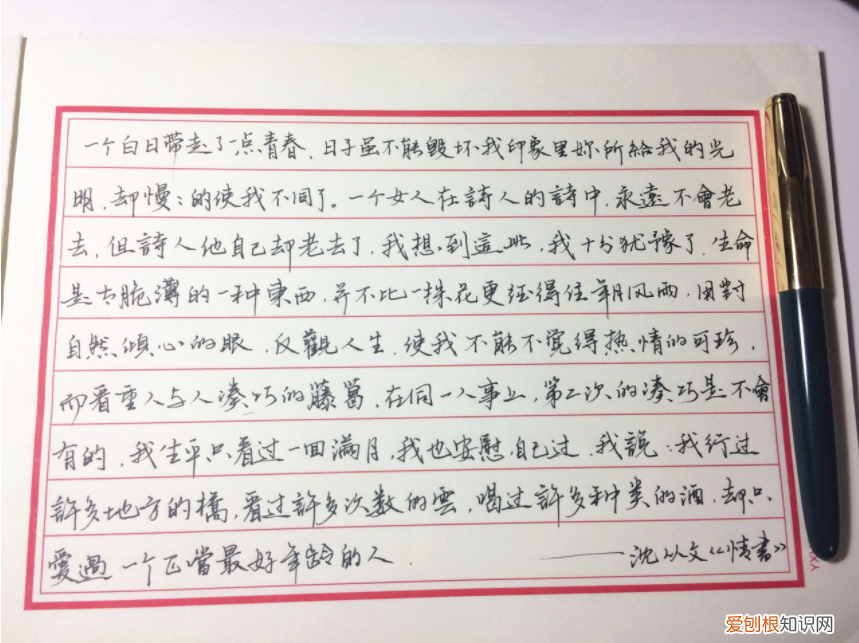 一个白日带走了一点青春，日子虽不能毁坏我印象里妳所給我的光
明，却慢：的使我不同了。一个女人在詩人的詩中，永遠不會老
去，但詩人他自己却老去了，我想到這些，我十分犹豫了，生命
是太脆薄的一种東西，并不比一株花更经得住年月风雨，用對
自然倾心的眼，反觀人生，使我不能不觉得热情的可珍，
而看重人与人凑巧的藤葛，在同一人事上，第二次的凑巧是不會
有的，我生平只看过一回满月，我也安慰自己过，我說：我行过
許多地方的橋，看过許多次数的雲，喝过許多种类的酒，却只
愛過一个正當最好年龄的人．
——沈从文《情書》
爱刨根知识网